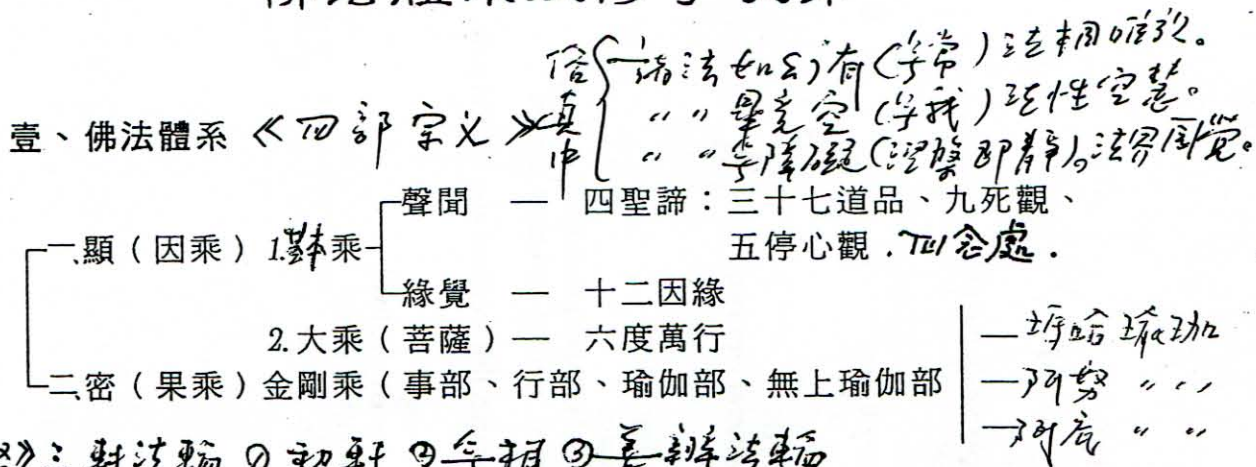 俗 諸法如幻有(無常)法相唯識。
真 〃 〃 畢竟空(無我)法性空慧。
中 〃 〃 無障礙(涅槃即靜)。法界圓覺。
壹、佛法體系《四部宗义》
聲聞 — 四聖諦：三十七道品、九死觀、
一、顯（因乘）1.基本乘 五停心觀．四念處．
緣覺 — 十二因緣
2.大乘（菩薩）— 六度萬行
二、密（果乘）金剛乘（事部、行部、瑜伽部、無上瑜伽部
—瑪哈瑜珈
—阿努 〃 〃
—阿底 〃 〃
》：轉法輪 ①初轉 ②無相 ③善辨法輪